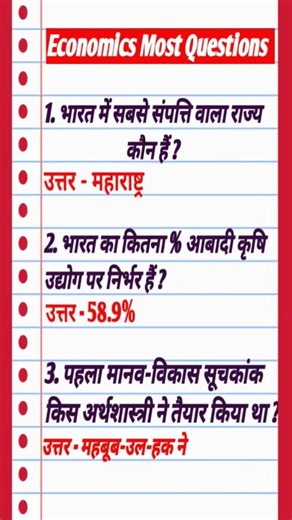 Economics Most Questions
1. भारत में सबसे संपत्ति वाला राज्य
कौन हैं ?
उत्तर - महाराष्ट्र
2. भारत का कितना % आबादी कृषि
उद्योग पर निर्भर हैं ?
उत्तर - 58.9%
3. पहला मानव-विकास सूचकांक
किस अर्थशास्त्री ने तैयार किया था ?
उत्तर - महबूब-उल-हक ने